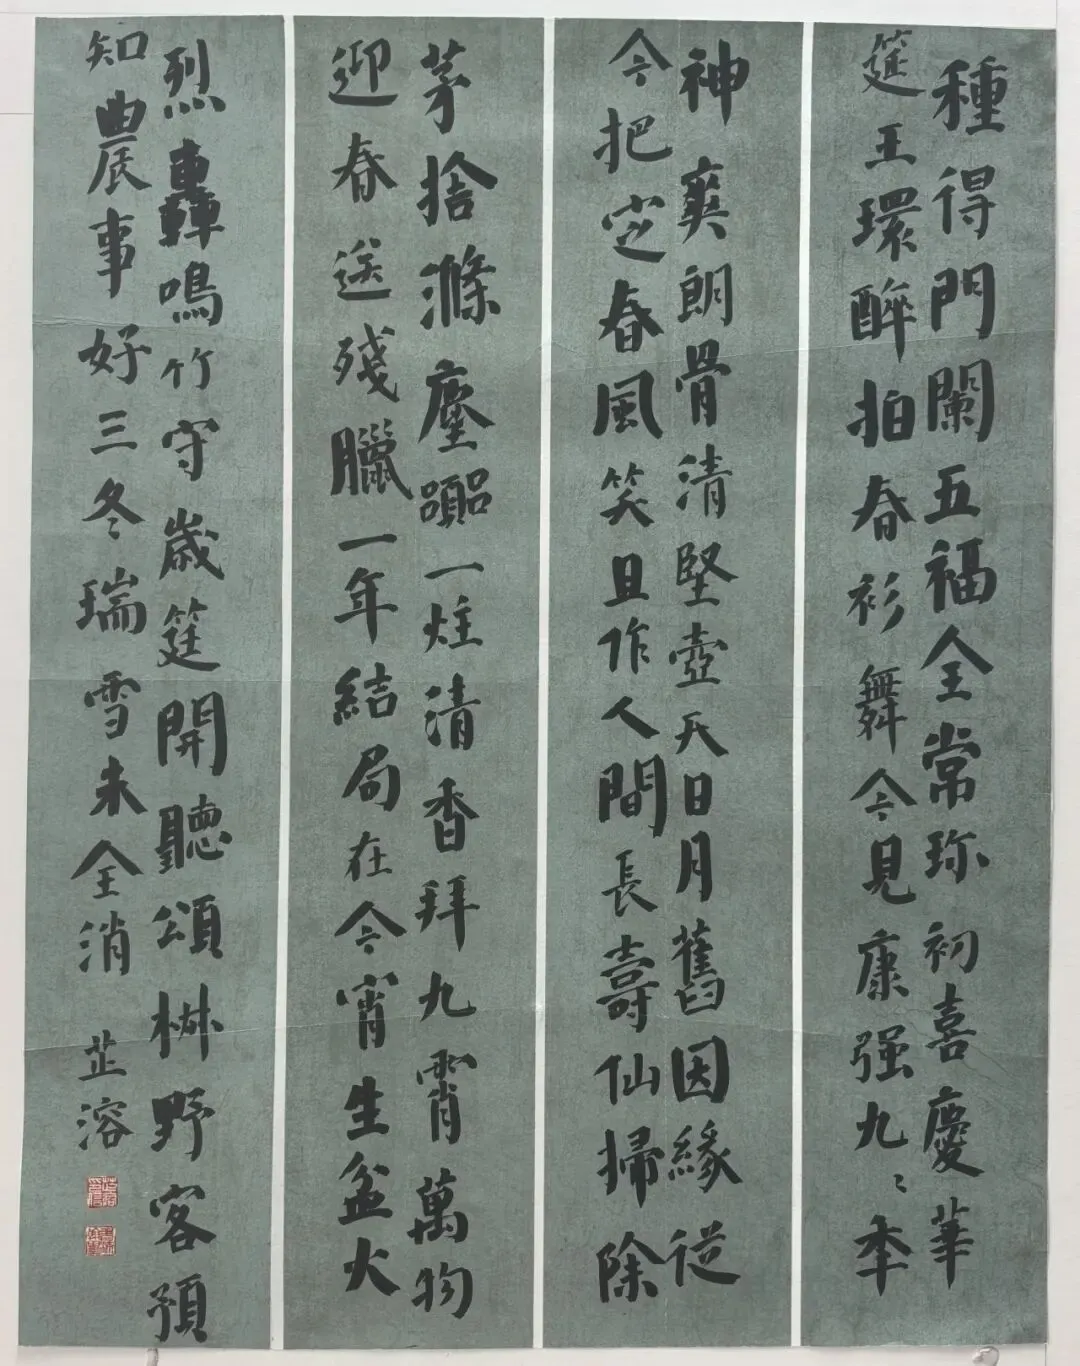 種得門闌五福全常珎初喜慶華
筵王環醉拍春衫舞今見康强九〻秊
神爽朗骨清堅壺天日月舊因緣從
今把定春風笑且作人間長壽仙掃除
茅捨滌塵囂一炷清香拜九霄萬物
迎春送殘臘一年結局在今宵生盆火
烈轟鳴竹守歲筵開聽頌椒野客預
知農事好三冬瑞雪未全消
芷溶